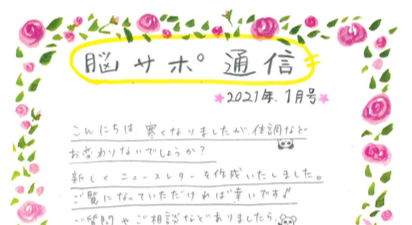 脳サポ通信
2021年、1月号
こんにちは 寒くなりましたが、体調など
お変わりないでしょうか?
新しくニュースレターを作成いたしました。
ご覧になっていただければ幸いです♪
ご質問やご相談などありましたら、